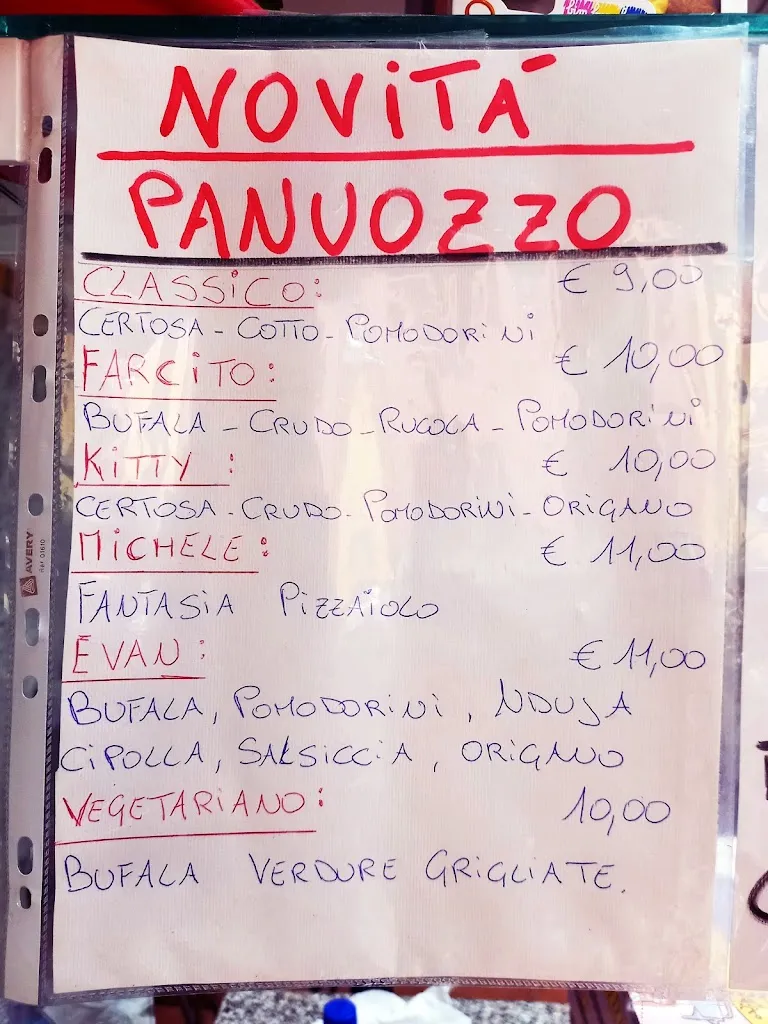 NOVITÁ
PANUOZZO
CLASSICO: € 9,00
CERTOSA - COTTO - POMODORINI
FARCITO: € 10,00
BUFALA - CRUDO - RUCOLA - POMODORINI
KITTY : € 10,00
CERTOSA - CRUDO - POMODORINI - ORIGANO
MICHELE : € 11,00
FANTASIA PIZZAIOLO
EVAN : € 11,00
BUFALA, POMODORINI, NDUJA
CIPOLLA, SALSICCIA, ORIGANO
VEGETARIANO : 10,00
BUFALA VERDURE GRIGLIATE.
AVERY